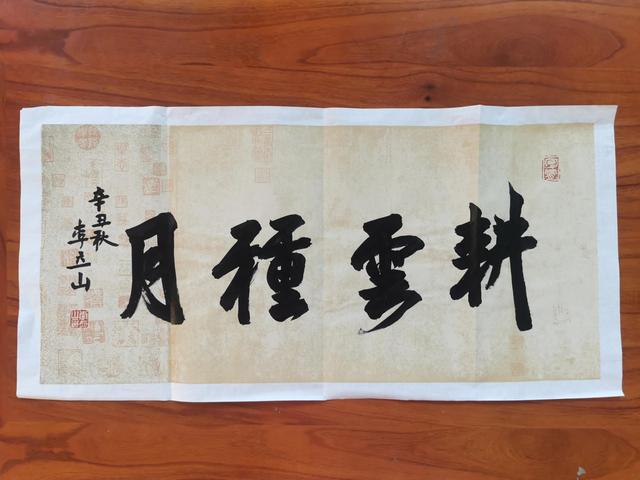 耕雲種月
辛丑秋
山